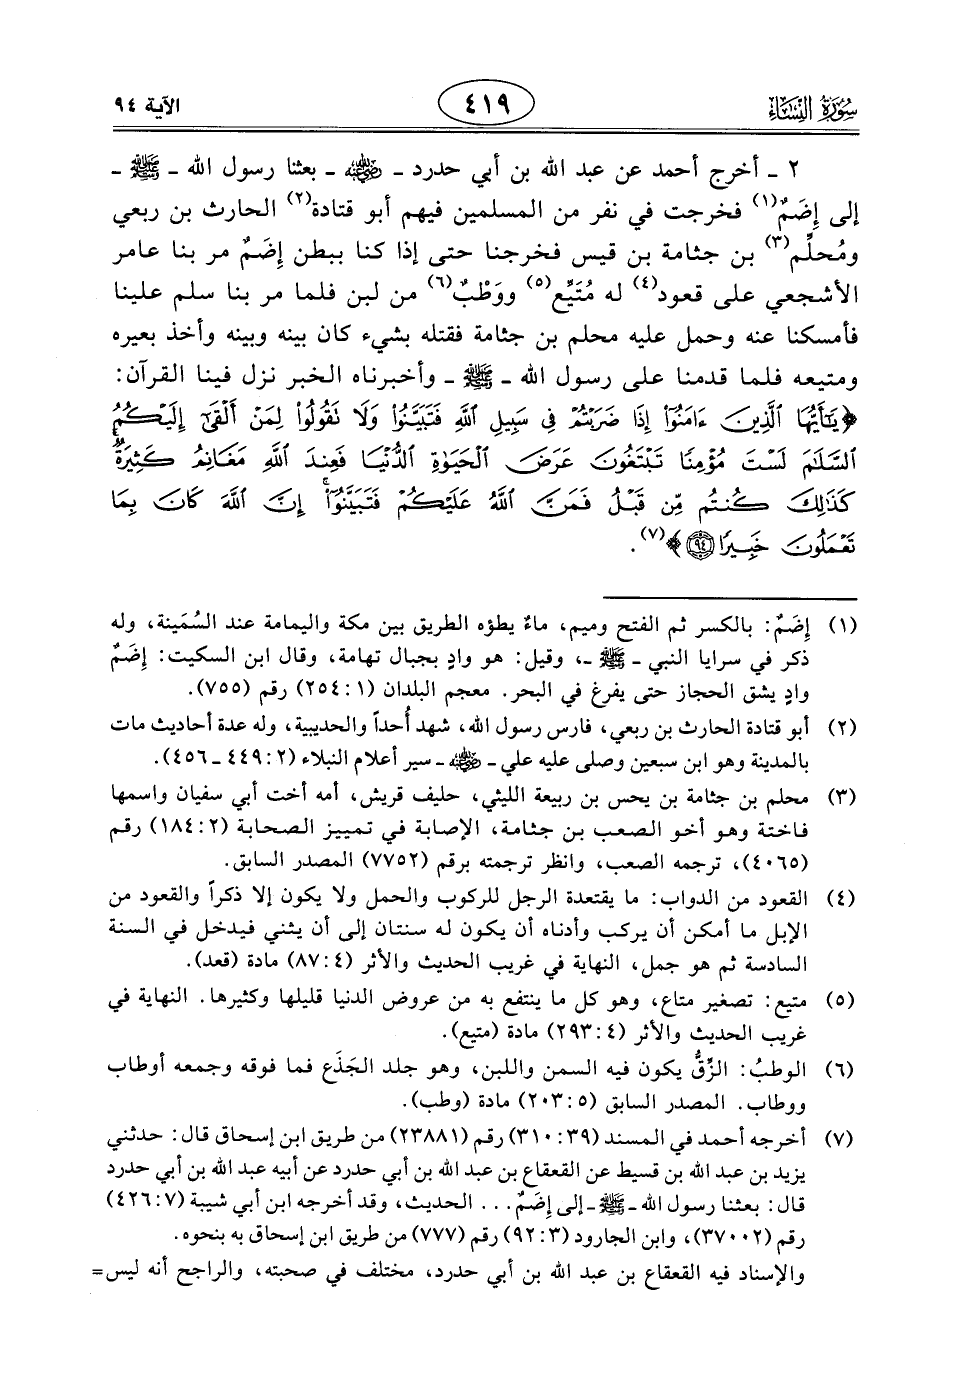 سورة النساء ٤١٩ الآية ٩٤
٢ ـ أخرج أحمد عن عبد الله بن أبي حدرد ـ رضي الله عنه ـ بعثنا رسول الله ـ ﷺ ـ
إلى إِضَمٌ(١) فخرجت في نفر من المسلمين فيهم أبو قتادة(٢) الحارث بن ربعي
ومُحلِّم(٣) بن جثامة بن قيس فخرجنا حتى إذا كنا ببطن إِضَمٌ مر بنا عامر
الأشجعي على قعود(٤) له مُتَيِّع(٥) ووَطْبٌ(٦) من لبن فلما مر بنا سلم علينا
فأمسكنا عنه وحمل عليه محلم بن جثامة فقتله بشيء كان بينه وبينه وأخذ بعيره
ومتيعه فلما قدمنا على رسول الله ـ ﷺ ـ وأخبرناه الخبر نزل فينا القرآن:
﴿يَٰٓأَيُّهَا ٱلَّذِينَ ءَامَنُوٓا۟ إِذَا ضَرَبْتُمْ فِى سَبِيلِ ٱللَّهِ فَتَبَيَّنُوا۟ وَلَا تَقُولُوا۟ لِمَنْ أَلْقَىٰٓ إِلَيْكُمُ
ٱلسَّلَٰمَ لَسْتَ مُؤْمِنًا تَبْتَغُونَ عَرَضَ ٱلْحَيَوٰةِ ٱلدُّنْيَا فَعِندَ ٱللَّهِ مَغَانِمُ كَثِيرَةٌ ۚ
كَذَٰلِكَ كُنتُم مِّن قَبْلُ فَمَنَّ ٱللَّهُ عَلَيْكُمْ فَتَبَيَّنُوٓا۟ ۚ إِنَّ ٱللَّهَ كَانَ بِمَا
تَعْمَلُونَ خَبِيرًا ٩٤﴾(٧).
(١) إِضَمٌ: بالكسر ثم الفتح وميم، ماءٌ يطؤه الطريق بين مكة واليمامة عند السُمَينة، وله
ذكر في سرايا النبي ـ ﷺ ـ، وقيل: هو وادٍ بجبال تهامة، وقال ابن السكيت: إِضَمٌ
وادٍ يشق الحجاز حتى يفرغ في البحر. معجم البلدان (١: ٢٥٤) رقم (٧٥٥).
(٢) أبو قتادة الحارث بن ربعي، فارس رسول الله، شهد أُحداً والحديبية، وله عدة أحاديث مات
بالمدينة وهو ابن سبعين وصلى عليه علي ـ رضي الله عنه ـ سير أعلام النبلاء (٢: ٤٤٩ ـ ٤٥٦).
(٣) محلم بن جثامة بن يحس بن ربيعة الليثي، حليف قريش، أمه أخت أبي سفيان واسمها
فاختة وهو أخو الصعب بن جثامة، الإصابة في تمييز الصحابة (٢: ١٨٤) رقم
(٤٠٦٥)، ترجمه الصعب، وانظر ترجمته برقم (٧٧٥٢) المصدر السابق.
(٤) القعود من الدواب: ما يقتعدة الرجل للركوب والحمل ولا يكون إلا ذكراً والقعود من
الإبل ما أمكن أن يركب وأدناه أن يكون له سنتان إلى أن يثني فيدخل في السنة
السادسة ثم هو جمل، النهاية في غريب الحديث والأثر (٤: ٨٧) مادة (قعد).
(٥) متيع: تصغير متاع، وهو كل ما ينتفع به من عروض الدنيا قليلها وكثيرها. النهاية في
غريب الحديث والأثر (٤: ٢٩٣) مادة (متيع).
(٦) الوطبُ: الزِّقُّ يكون فيه السمن واللبن، وهو جلد الجَذَع فما فوقه وجمعه أوطاب
ووطاب. المصدر السابق (٥: ٢٠٣) مادة (وطب).
(٧) أخرجه أحمد في المسند (٣٩: ٣١٠) رقم (٢٣٨٨١) من طريق ابن إسحاق قال: حدثني
يزيد بن عبد الله بن قسيط عن القعقاع بن عبد الله بن أبي حدرد عن أبيه عبد الله بن أبي حدرد
قال: بعثنا رسول الله ـ ﷺ ـ إلى إِضَمٌ... الحديث، وقد أخرجه ابن أبي شيبة (٧: ٤٢٦)
رقم (٣٧٠٠٢)، وابن الجارود (٣: ٩٢) رقم (٧٧٧) من طريق ابن إسحاق به بنحوه.
والإسناد فيه القعقاع بن عبد الله بن أبي حدرد، مختلف في صحبته، والراجح أنه ليس=